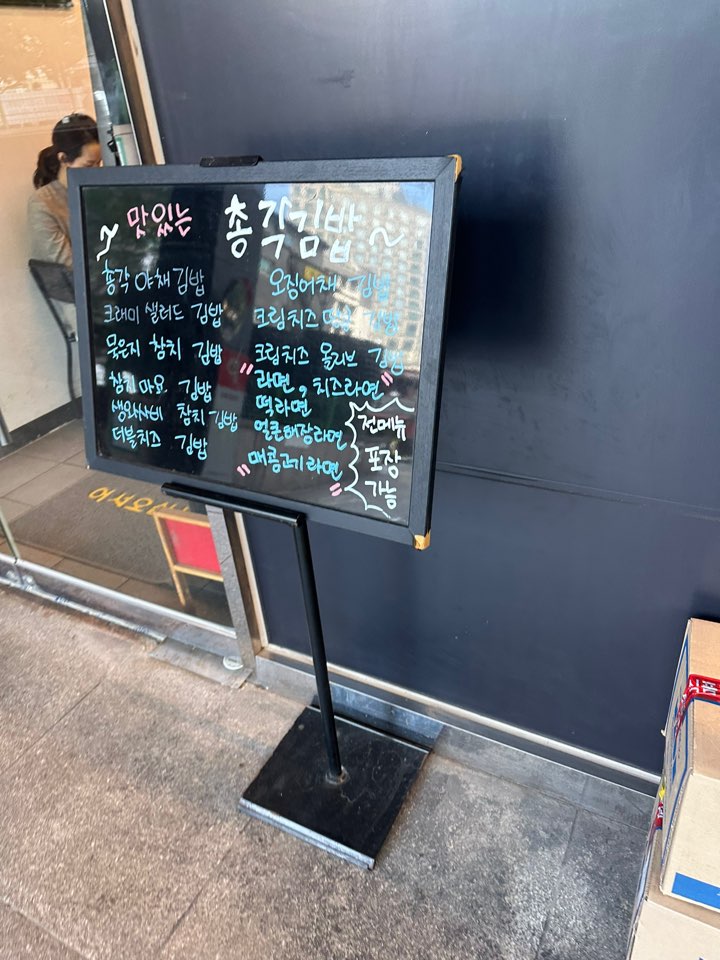 ~ 맛있는 총각김밥 ~
총각 야채 김밥
크래미 샐러드 김밥
묵은지 참치 김밥
참치마요 김밥
생와사비 참치 김밥
더블치즈 김밥
오징어채 김밥
크림치즈 김밥
크림치즈 올리브 김밥
"라면, 치즈라면"
떡라면
얼큰해장라면
"매콤고기라면"
전메뉴
포장
가능
어서오